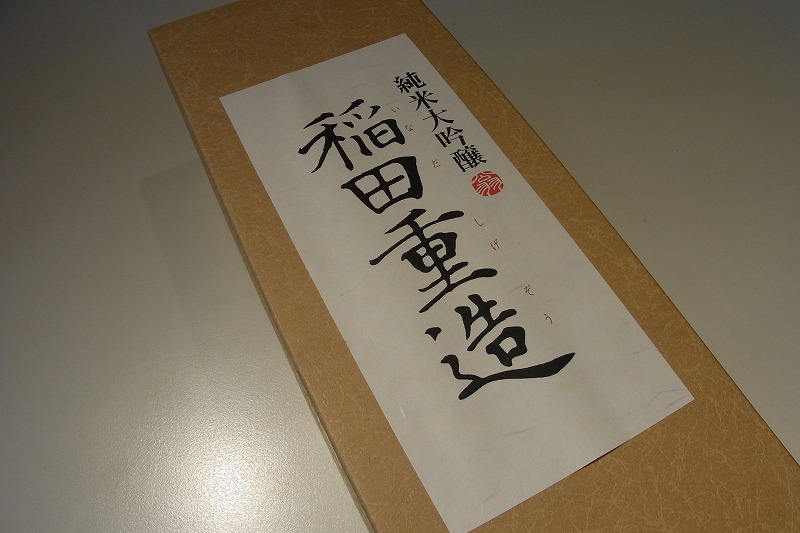 純米大吟醸
いなだ しげぞう
稲田重造